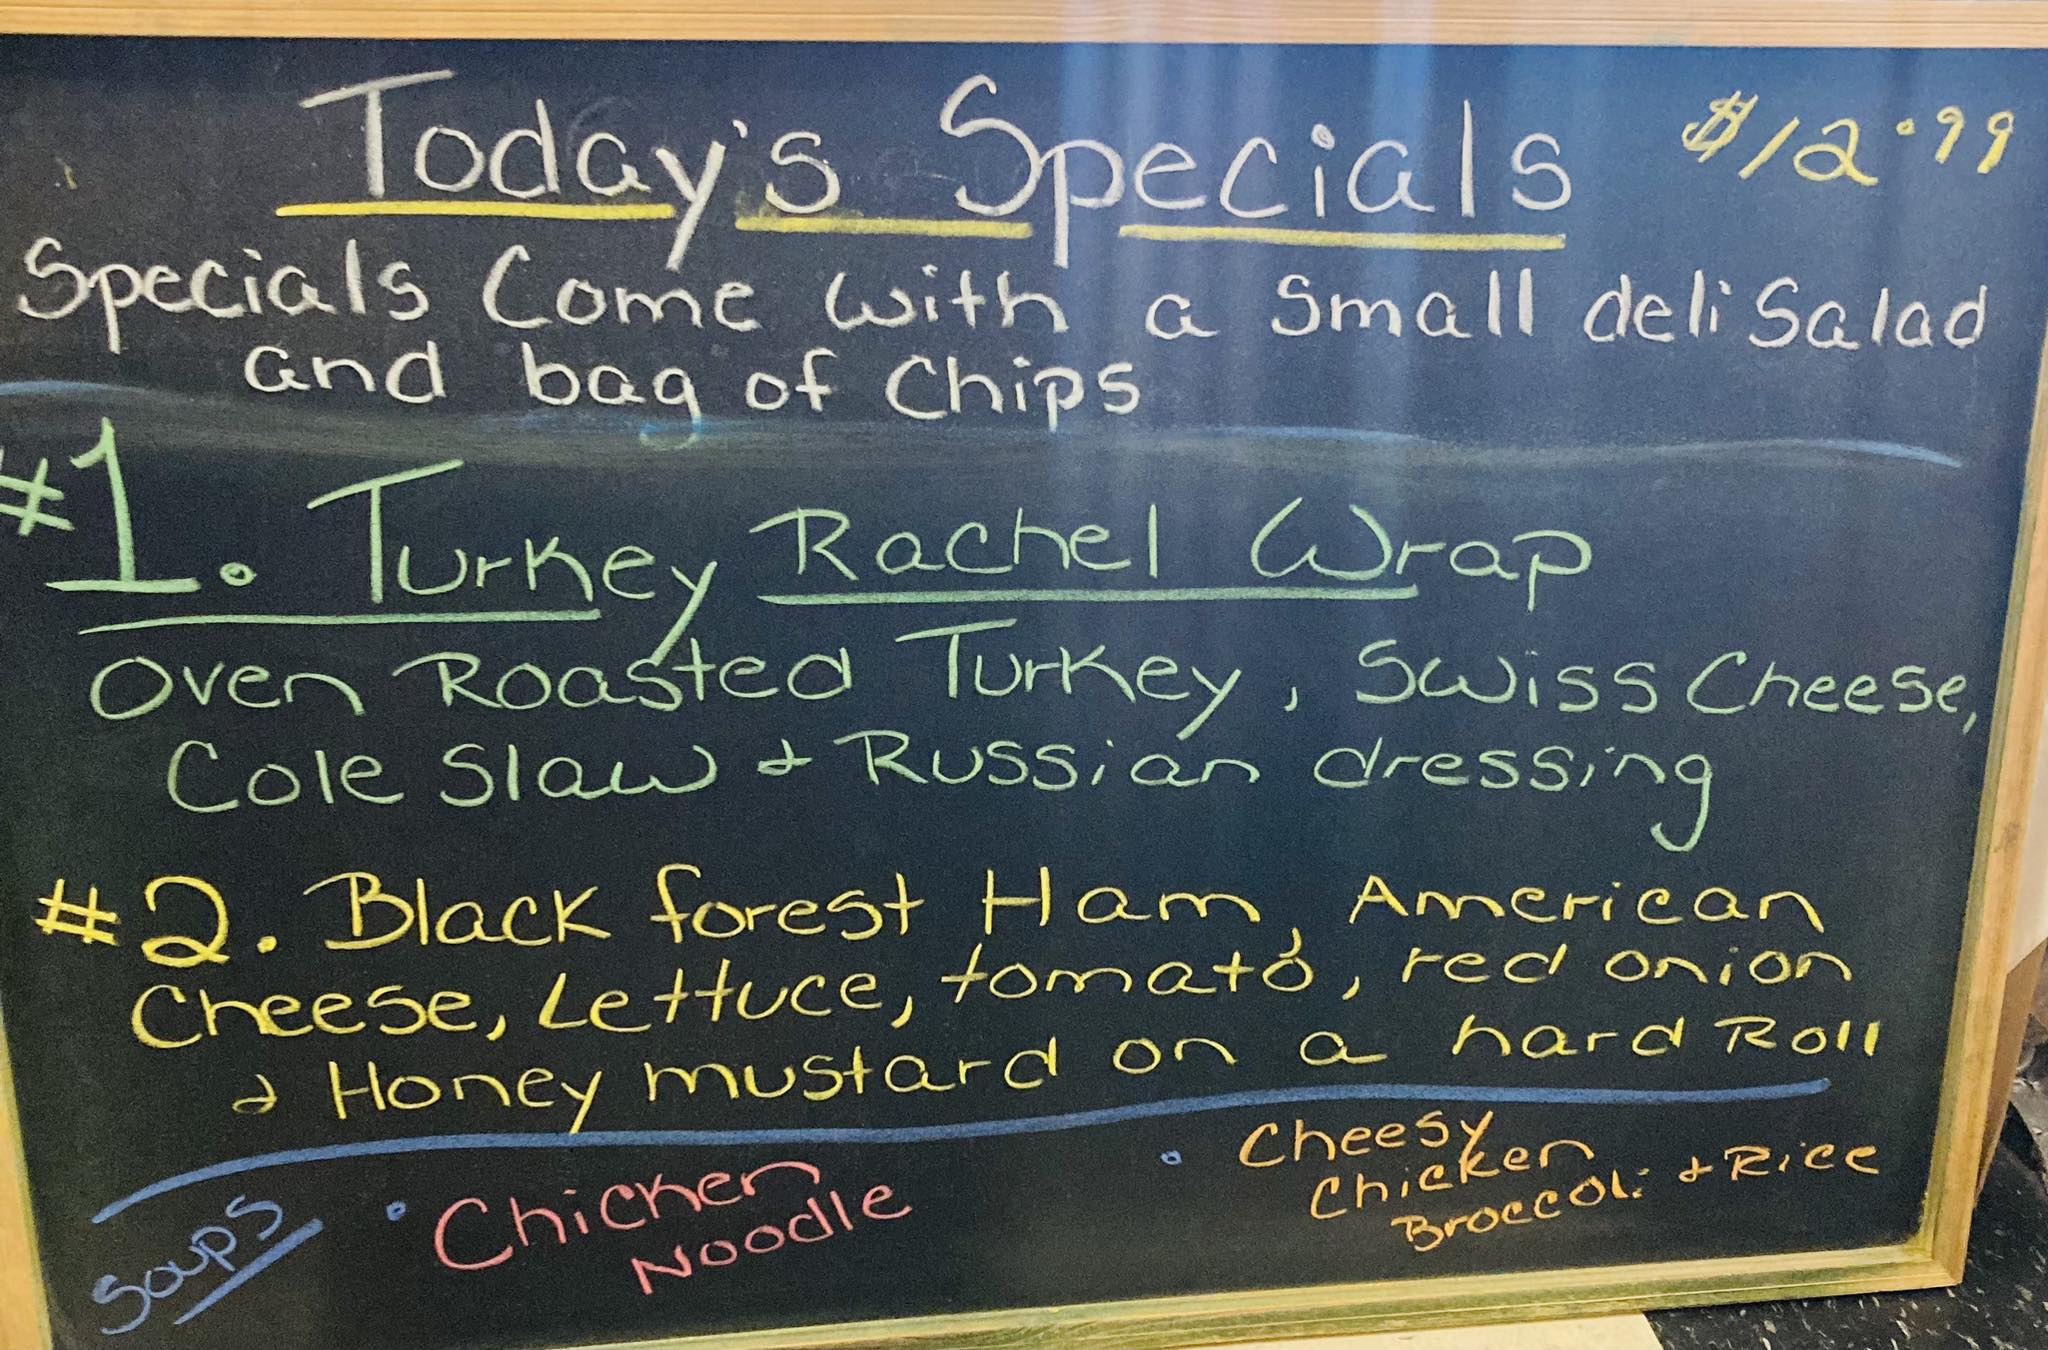 Today's Specials $12.99
Specials Come with a Small deli Salad
and bag of Chips
#1. Turkey Rachel Wrap
Oven Roasted Turkey, Swiss Cheese,
Cole Slaw & Russian dressing
#2. Black forest Ham, American
Cheese, Lettuce, tomato, red onion
& Honey mustard on a hard Roll
Soups
• Chicken
Noodle
• Cheesy
Chicken
Broccoli & Rice